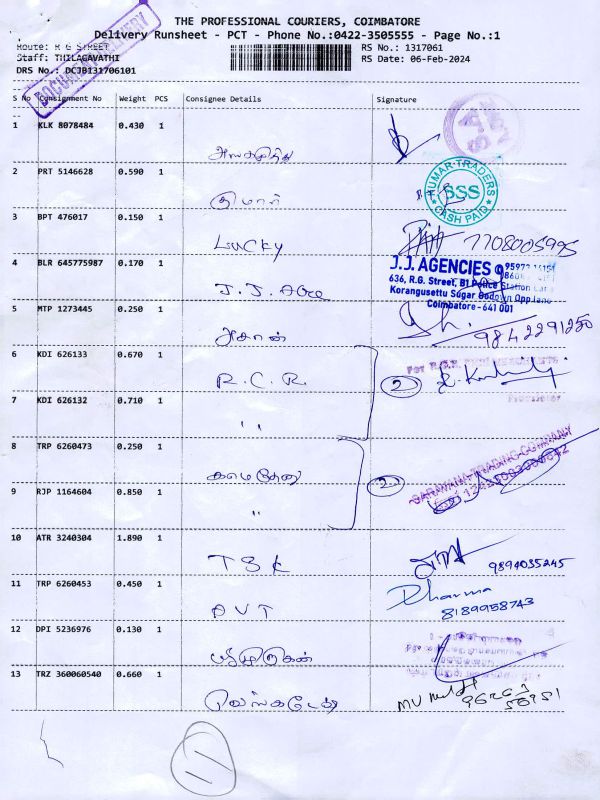 THE PROFESSIONAL COURIERS, COIMBATORE
Delivery Runsheet - PCT - Phone No.:0422-3505555 - Page No.:1
Route: R G STREET
RS No.: 1317061
Staff: THILAGAVATHI
RS Date: 06-Feb-2024
DRS No.: DCJB131706101
DOCUMENT DELIVERY
S No Consignment No Weight PCS Consignee Details Signature
1 KLK 8078484 0.430 1
2 PRT 5146628 0.590 1 குமார்
KUMAR TRADERS
SSS
CASH PAID
3 BPT 476017 0.150 1 LUCKY 7708005995
4 BLR 645775987 0.170 1 J.J. Age
J.J. AGENCIES
636, R.G. Street, B1 Police Station
Korangusettu Sugar Godown Opp lane
Coimbatore - 641 001
5 MTP 1273445 0.250 1 அசோன் 9842291250
6 KDI 626133 0.670 1 R.C.R. 2
7 KDI 626132 0.710 1 "
8 TRP 6260473 0.250 1 காமதேனு 2
SARAVANA TRADING COMPANY
9 RJP 1164604 0.850 1 "
10 ATR 3240304 1.890 1 TSK 9894035245
11 TRP 6260453 0.450 1 AVT Dharma
8189958743
12 DPI 5236976 0.130 1
13 TRZ 360060540 0.660 1 வெங்கடேஷ்
11